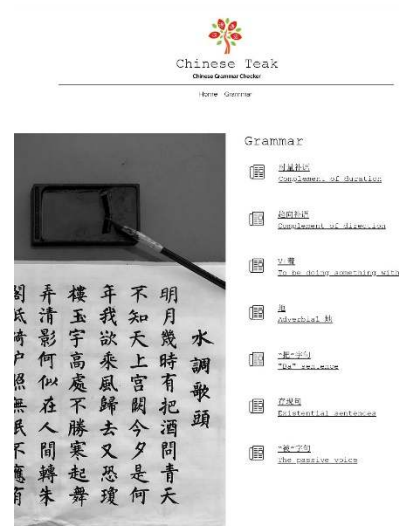 Chinese Teak
Chinese Grammar Checker
Home Grammar
水調歌頭
明月幾時有把酒問青天
不知天上宮闕今夕是何
年我欲乘風歸去又恐瓊
樓玉宇高處不勝寒起舞
弄清影何似在人間轉朱
戶照無不應有
Grammar
时量补语
Complement of duration
趋向补语
Complement of direction
V.着
To be doing something with
地
Adverbial 地
"把"字句
"Ba" sentence
存现句
Existential sentences
"被"字句
The passive voice